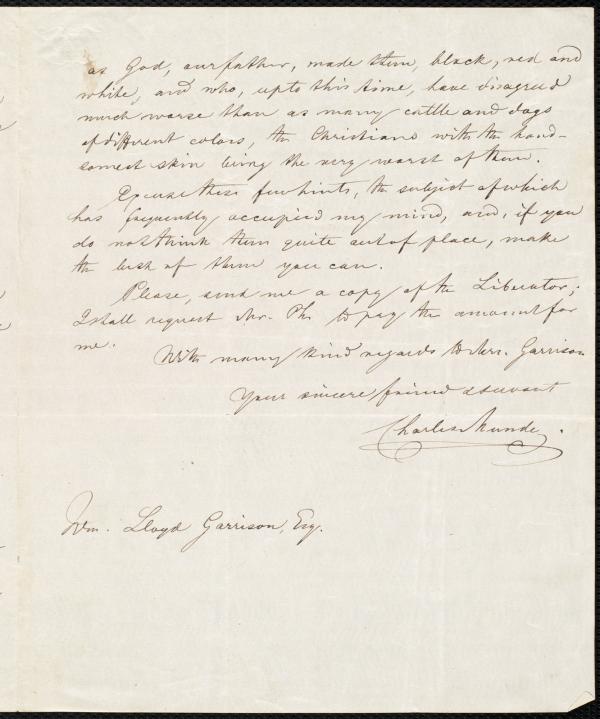 as God, our father, made them, black, red and
white, and who, up to this time, have disagreed
much worse than as many cattle and dogs
of different colors, the Christians with the hand-
somest skin being the very worst of them.
Excuse these few hints, the subject of which
has frequently occupied my mind, and, if you
do not think them quite out of place, make
the best of them you can.
Please, send me a copy of the Liberator;
I shall request Mr. Ph. to pay the amount for
me.
With many kind regards to Mrs. Garrison
Your sincere friend & servant
Charles Munde.
Wm. Lloyd Garrison, Esq.